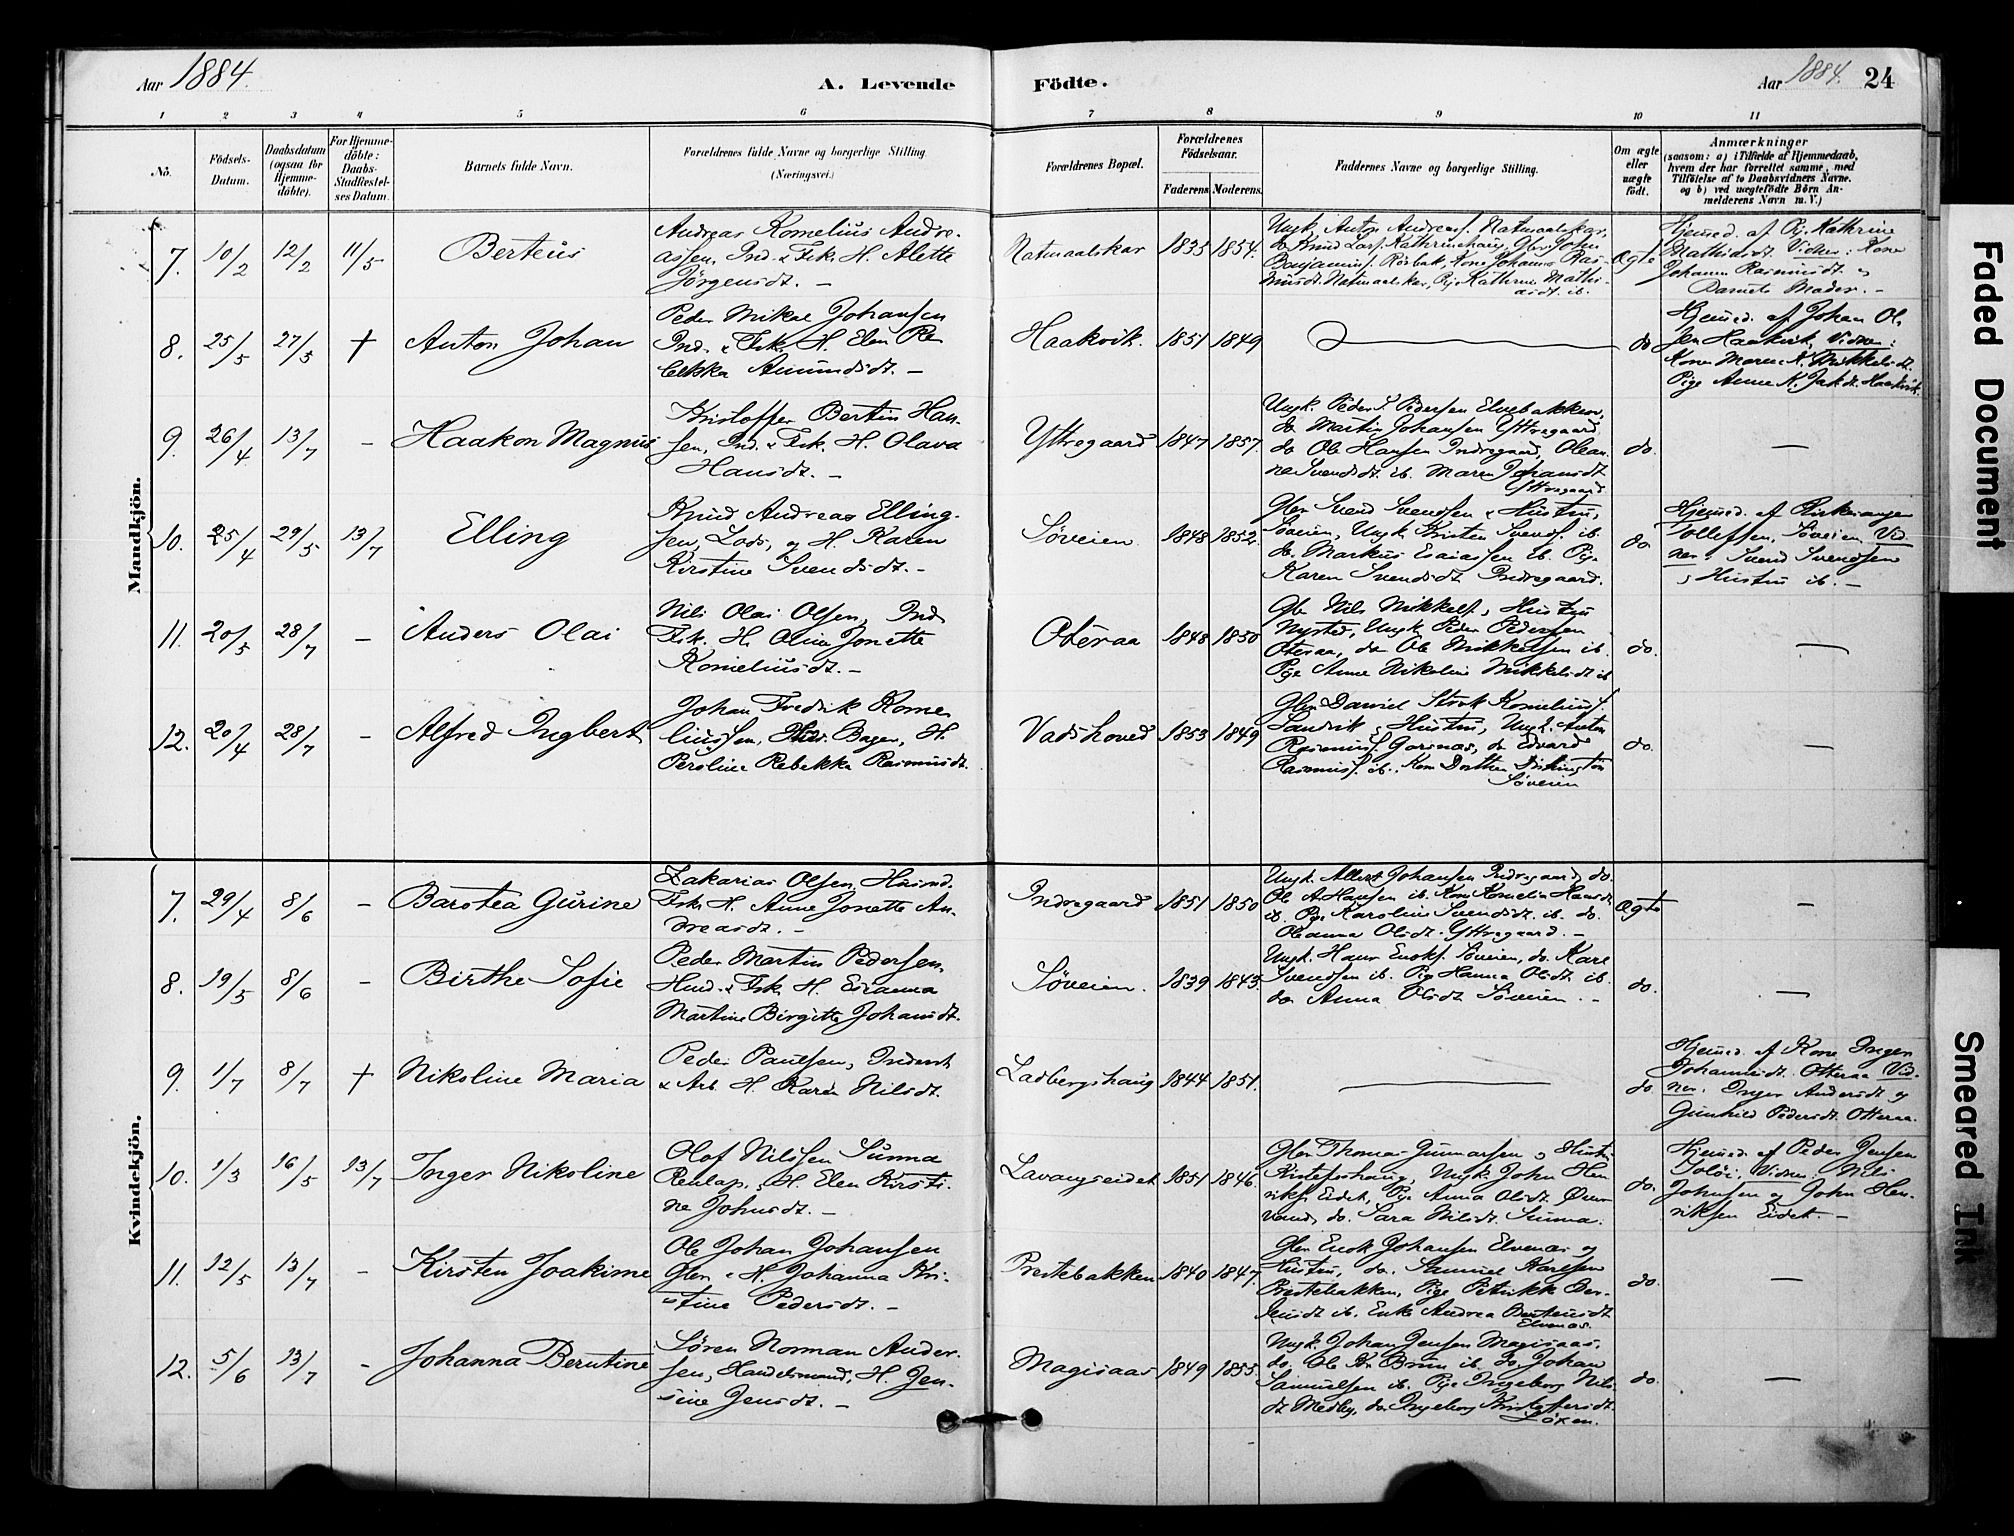 Aar 1884.
A. Levende Födte.
Aar 1884. 24
1 2 3 4 5 6 7 8 9 10 11
No.
Födsels-Datum.
Daabsdatum (ogsaa for Hjemme-döbte).
For Hjemme-döbte: Daabs-Stadfæstel-ses Datum.
Barnets fulde Navn.
Forældrenes fulde Navne og borgerlige Stilling.
(Næringsvei.)
Forældrenes Bopæl.
Forældrenes Födselsaar.
Faderens Moderens.
Faddernes Navne og borgerlige Stilling.
Om ægte eller uægte födt.
Anmærkninger
(saasom: a) i Tilfælde af Hjemmedaab,
hvem der har forrettet samme, med
Tilföielse af to Daabsvidners Navne.
og b) ved uægtefödte Börn An-
melderens Navn m.V.)
Mandkjön.
7. 10/2 12/2 11/5 Berteus
Andreas Kornelius Andre-
assen, Ind. & Fisk. H. Alette
Jörgensdt. —
Natmaalskar 1835 1854.
Ungk. Anton Andreas. Natmaalskar,
do Knud Lars. Kathrinehaug, Gbr. John
Benjamins. Rörbak, Kone Johanna Ras-
musdt. Natmaalskar, Pig. Kathrine Mathi-
asdt. ib.
Ægte
Hjemed. af Pig. Kathrine
Mathisdt. Vidner: Kone
Johanna Rasmusdt. og
Barnets Moder. —
8. 25/5 27/5 † Anton Johan
Peder Mikal Johansen
Ind. & Fisk. H. Elen Re-
bekka Amundsdt. —
Haakvik. 1851 1849
do
Hjemed. af Johan Ol-
sen Haakvik, Vidner:
Kone Maren K. Mikkelsdt.
Pige Anne K. Jakdt. Haakvik.
9. 26/4 13/7 - Haakon Magnus
Kristoffer Bertin Han-
sen, Ind. & Fisk. H. Olava
Hansdt. —
Yttregaard 1847 1857.
Ungk. Peder S. Pedersen Elvebakken,
do Martin Johansen Yttregaard
do Ole Hansen Indregaard, Olean-
na Svendsdt ib. Maren Johansdt
Yttregaard
do. —
10. 25/4 29/5 13/7 Elling
Knud Andreas Elling-
sen, Lods, og H. Karen
Kirstine Svendsdt. —
Söveien. 1848 1852.
Gbr Svend Svendsen & Hustru,
Söveien, Ungk. Kristen Svends. ib.
do. Markus Esaiassen ib. Pige
Karen Svendsdt Indregaard.
do
Hjemed. af Kirkesanger
Tollefsen, Söveien, Vid-
ner: Svend Svendsen
& Hustru ib. —
11. 20/5 28/7 - Anders Olai
Nils Olai Olsen, Ind
Fisk. H. Oline Jonette
Korneliusdt. —
Oteraa 1848 1850
Gbr Nils Mikkels. & Hustru
Nysted, Ungk. Peder Pedersen
Oteraa, do Ole Mikkelsen ib.
Pige Anne Nikoline Mikkelsdt ib
do. —
12. 20/4 28/7 - Alfred Ingbert
Johan Fredrik Korne-
liussen, Bager, H.
Peroline Rebekka Rasmusdt.
Vadshoved 1853 1849
Gbr. Daniel Kornelius.
Sandvik & Hustru, Ungk. Anton
Rasmus. Garsnæs, do Edvard
Rasmus. ib. Kone Dorthea
Söveien
do. —
Kvindekjön.
7. 29/4 8/6 - Barotea Gurine
Zakarias Olsen, Husmd.
Fisk. H. Anne Jonette An-
dreasdt. —
Indregaard 1851 1850
Ungk. Albert Johansen Indregaard, do.
Ole A. Hansen ib. Kone Kornelia Hansdt.
ib. Pige Karoline Svendsdt. ib. do.
Oleanna Olsdt. Yttregaard. —
Ægte —
8. 19/5 8/6 - Birthe Sofie
Peder Martin Pedersen,
Husd. & Fisk. H. Esianna
Martine Birgitte Johansdt.
Söveien. 1839 1843.
Ungk. Hans Enoks. Söveien, do. Karl
Svendsen ib. Pige Hanna Olsdt ib.
do Anna Olsdt Söveien. —
do. —
9. 1/7 8/7 † Nikoline Maria
Peder Paulsen, Inderst
& Arb. H. Karen Nilsdt.
Ladbergshaug 1844 1851.
do.
Hjemed. af Kone Inger
Johannesdt. Otteraa Vid-
ner. Inger Andersdt og
Gunhild Pedersdt. Otteraa.
10. 1/3 16/5 13/7 Inger Nikoline
Olof Nilssen Sunna
Renlap. & H. Elen Kirsti-
ne Johnsdt. —
Lavangseidet 1851 1846.
Gbr Thomas Gunnarsen & Hustru
Kristofershaug, Ungk. John Hen-
riks. Eidet, Pige Anna Olsdt.
vand, do. Sara Nilsdt. Sunna.
do.
Hjemed. af Peder Jensen
Soløi, Vidner: Nils
Johnsen og John Hen-
riksen Eidet. —
11. 12/5 13/7 - Kirsten Joakime
Ole Johan Johansen
Gbr. & H. Johanna Kri-
stine Pedersdt. —
Prestebakken 1840 1847.
Gbr Enok Johansen Elvenæs og
Hustru, do. Samuel Karlsen
Prestebakken, Pige Petrikke Ber-
teusdt ib. Enke Andrea Berteusdt
Elvenæs.
do. —
12. 5/6 13/7 - Johanna Berntine
Sören Norman Ander-
sen, Handelsmand, H. Jen-
sine Jensdt. —
Magisaas 1849 1855.
Ungk. Johan Jensen Magisaas,
do. Ole Kr. Brun ib. Do. Johan
Samuelsen ib. Pige Ingeborg Nils-
dt Medby, do. Ingeborg Kristoffersdt.
Löxen.
do. —
Faded Document
Smeared Ink